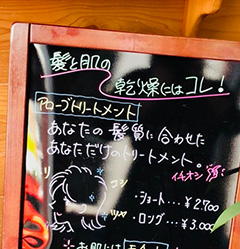 髪と肌の
乾燥にはコレ!
アローブトリートメント
あなたの髪質に合わせた
あなただけのトリートメント。
イチオシ
コシ
ツヤ
・ショート… ¥2.700
・ロング… ¥3.000
お肌には